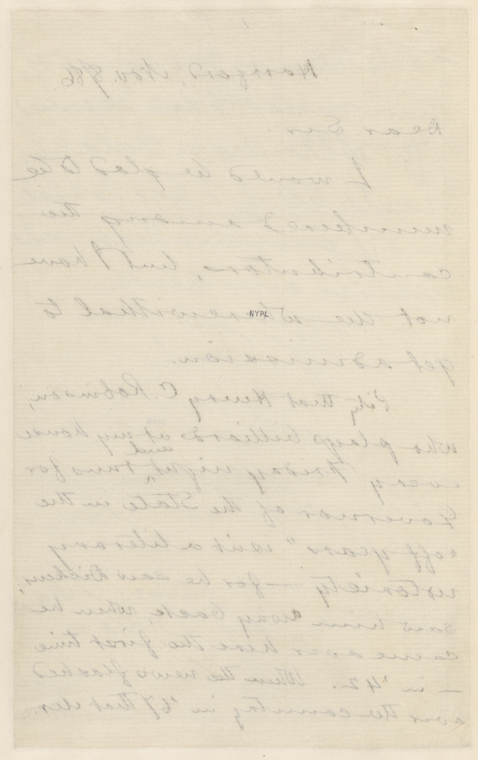 Hartford, Nov. 8/86
Dear Sir
I would be glad to be
numbered among the
contributors, but I have
not the wherewithal to
get admission.
NYPL
Pity that Henry C. Robinson,
who plays billiards at my house
every Friday night, and runs for
Governor of the State in the
"off years" isn't a literary
notoriety — for he saw Dickens,
saw him away back, when he
came over here the first time
— in '42. When the news flashed
over the country, in '67 that